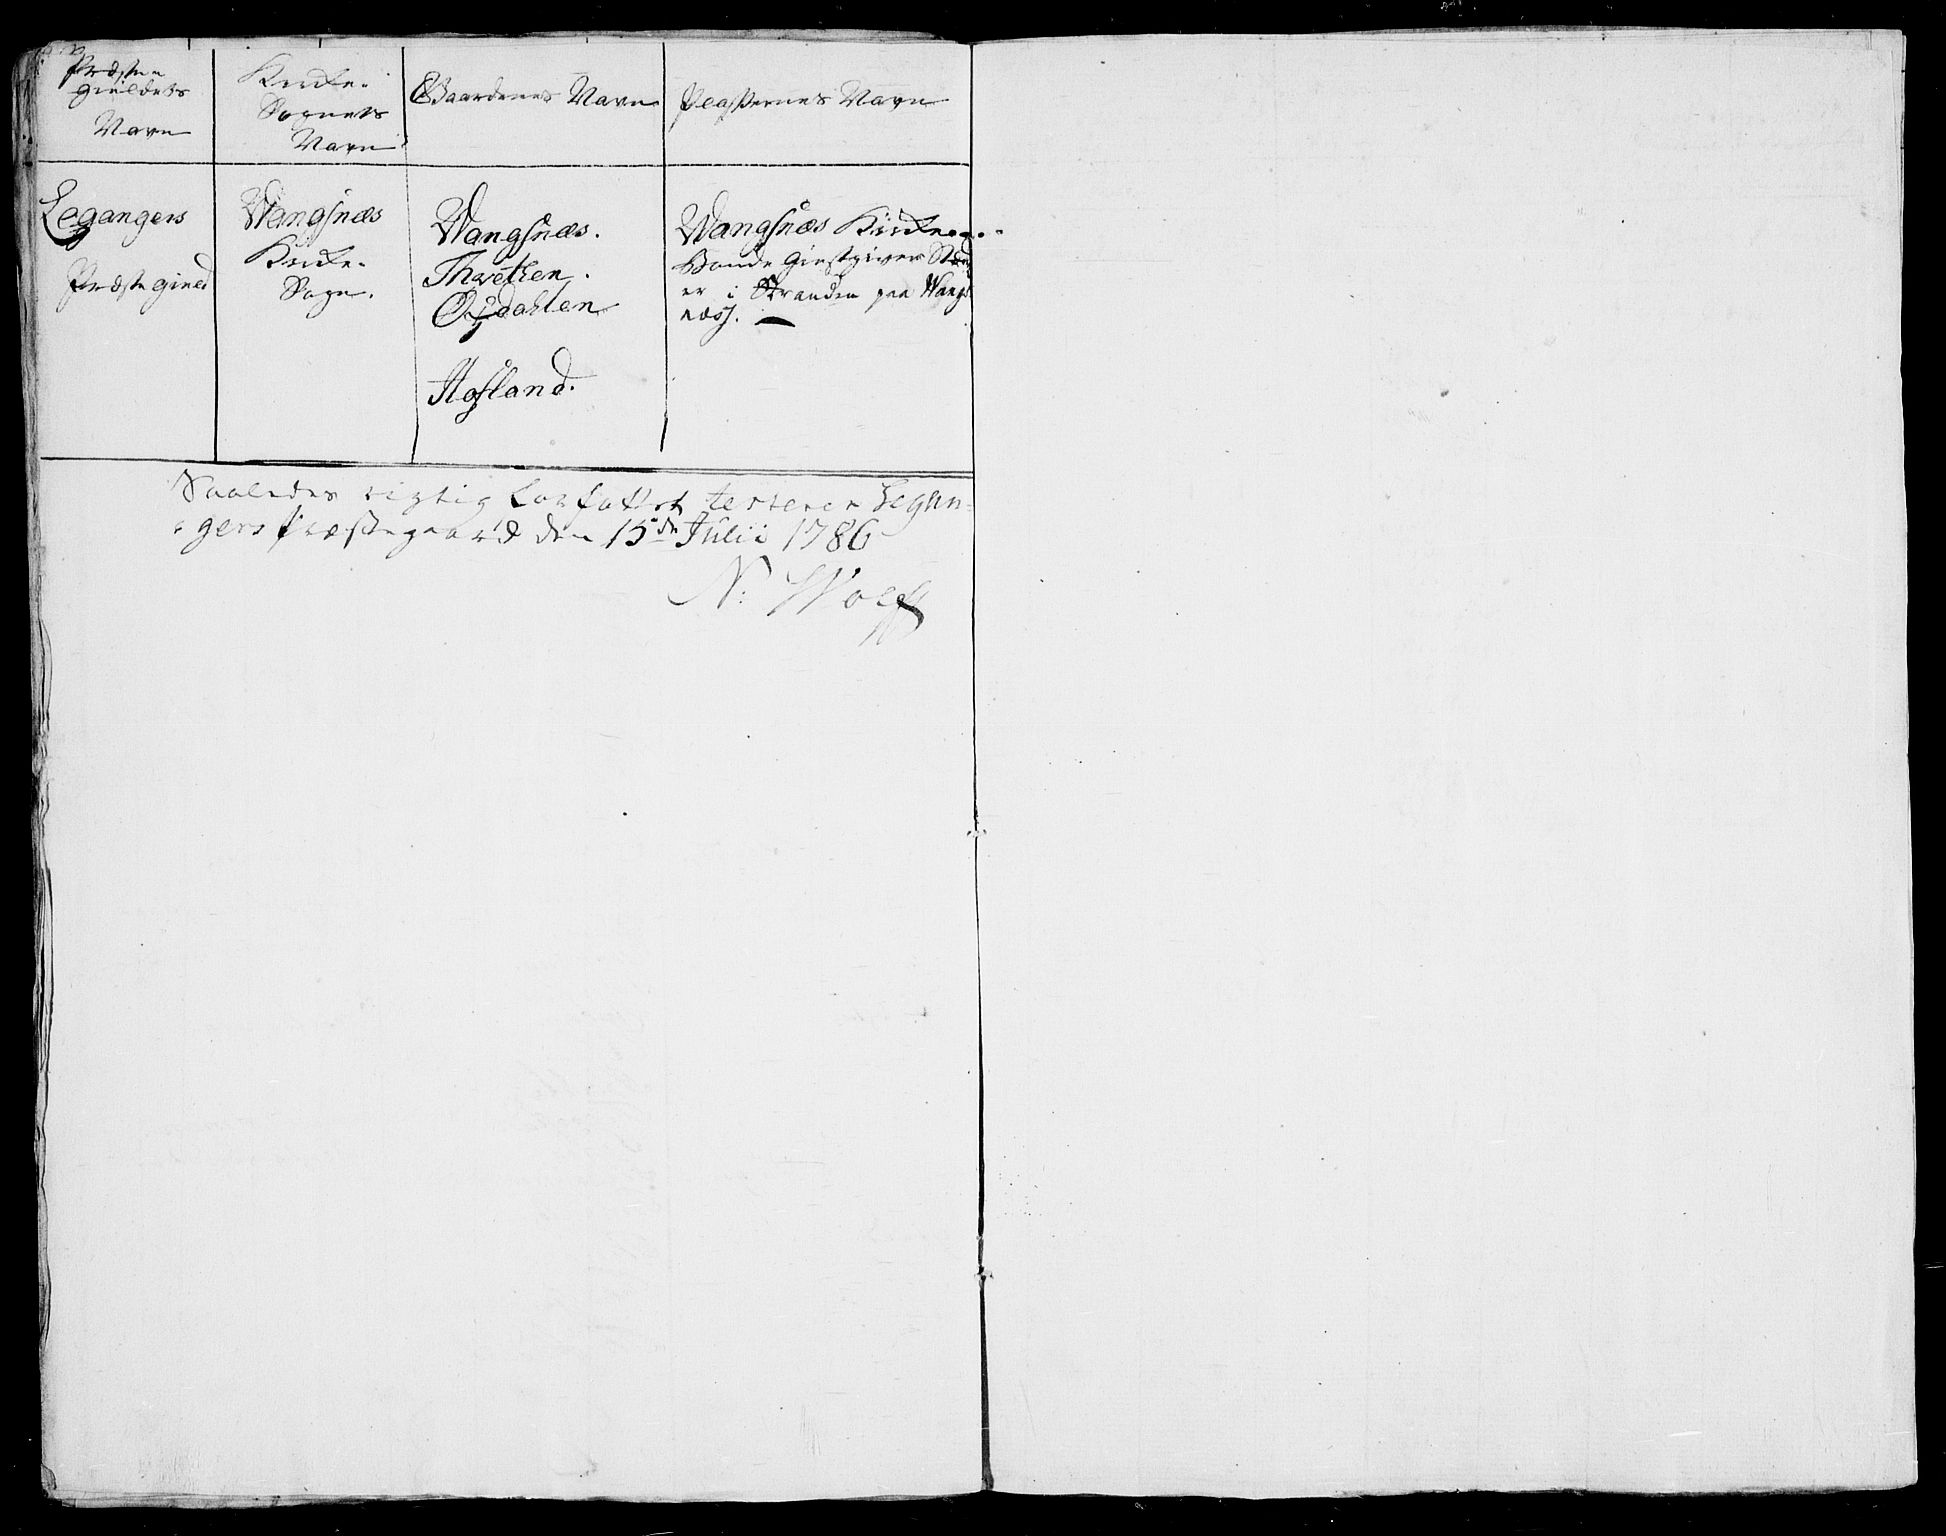 Præste
gieldets
Navn
Kirke-
Sognets
Navn
Gaardenes Navn
Pladsernes Navn
Legangers
Præste gield
Wangsnæs
Kirke-
Sogn.
Wangsnæs.
Thvethen.
Opdahlen
Hofland.
Wangsnæs Kirke og
Bonde Giestgiver Stæd
er i Stranden paa Wangs
næss.
Saaledes rigtig forfattet testerer Legan-
gers Præstegaard den 15de Julii 1786
N: Wolff